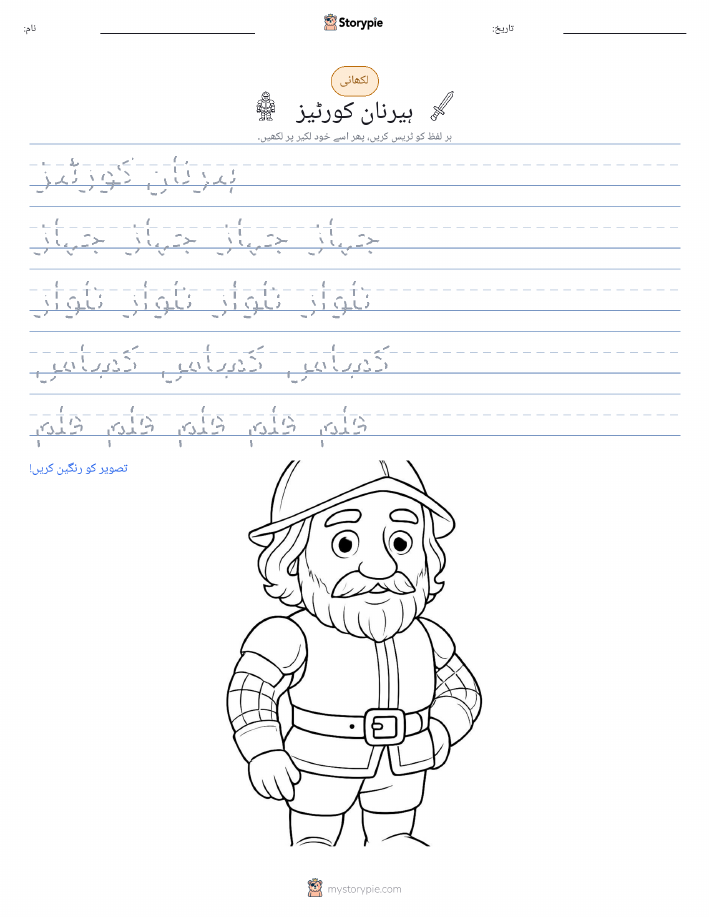 Storypie
نام:
تاریخ:
لکھائی
ہیرنان کورٹیز
ہر لفظ کو ٹریس کریں، پھر اسے خود لکیر پر لکھیں۔
ہیرنان کورٹیز
جہاز جہاز جہاز جہاز
تلوار تلوار تلوار تلوار
کمپاس کمپاس کمپاس
قلم قلم قلم قلم قلم
تصویر کو رنگین کریں!
mystorypie.com